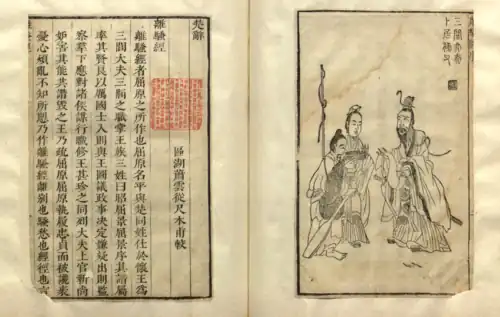 三閭大夫
卜居漁父
楚辭
離騷經
區湖蕭雲從尺木甫較
離騷經者屈原之所作也屈原名平與楚同姓仕於懷王為
三閭大夫三閭之職掌王族三姓曰昭屈景屈原序其譜屬
率其賢良以厲國士入則與王圖議政事決定嫌疑出則監
察羣下應對諸侯謀行職修王甚珍之同列大夫上官靳尚
妒害其能共譖毀之王乃疏屈原屈原執履忠貞而被讒衺
憂心煩亂不知所愬乃作離騷經離別也騷愁也經徑也言